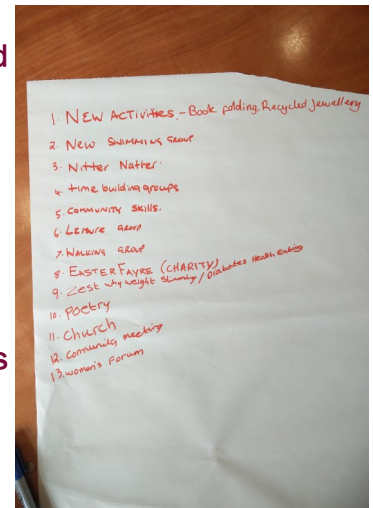 d
1. NEW ACTIVITIES - Book folding, Recycled Jewellery
2. New SWIMMING GROUP
3. Nitter Natter.
4. time building groups
5. COMMUNITY SKILLS.
6. LEISURE GROUP
7. WALKING GROUP
8. EASTER FAYRE (CHARITY)
9. Zest why weight Slimming / Diabetes Health Eating
10. POETRY
11. Church
12. Community meeting
s
13. women's Forum